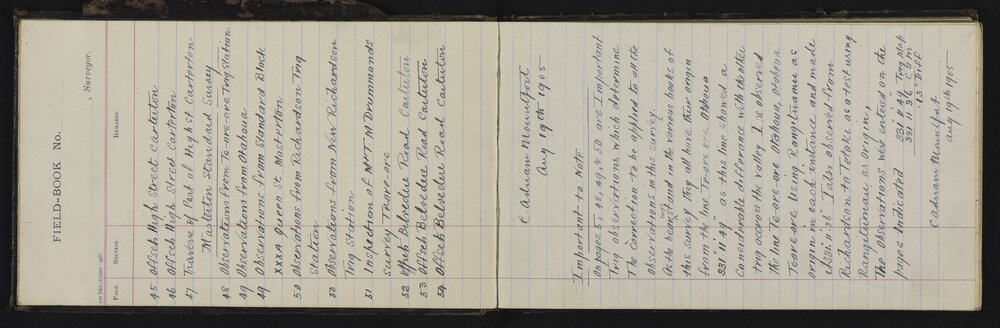 FIELD-BOOK No.
, Surveyor.
Page. Section. Remarks.
45 Offsets High Street Carterton
46 Offsets High Street Carterton
47 Traverse of Part of High st Carterton
Masterton Standard Survey
48 Observations from Te-ore-ore Trig Station
49 Observations from Otahoua
49 Observations from Standard Block
XXXA Queen St Masterton
50 Observations from Richardson Trig
Station
50 Observations from New Richardson
Trig Station
51 Inspection of Mr T. M. Drummonds
Survey Te-ore-ore
52 Offsets Belvedere Road Carterton
53 Offsets Belvedere Road Carterton
54 Offsets Belvedere Road Carterton
C. Adnam Mountfort
Aug 19th 1905
Important to Note
On pages 5, 48, 49, & 50 are Important
Trig observations which determine
The "Correction to be applied to all the
observations in this survey.
As the bearings now stand in the various books of
this survey they all have their origin
from the line Te-ore-ore Otahoua
331° 11' 49" as this line showed a
Considerable difference with the other
trig across the valley I re observed
the line Te-ore-ore Otahoua, Otahoua
Te-ore-ore using Rangitumu as
origin in each instance and made
it 331° 11' 36" I also observed from
Richardson to Totoke as a test using
Rangitumu as origin,
The Observations now entered on the
pages Indicated
331 11 49 Trig Map
331 11 36 C A M
13" Diff
C Adnam Mountfort
Aug 19th 1905